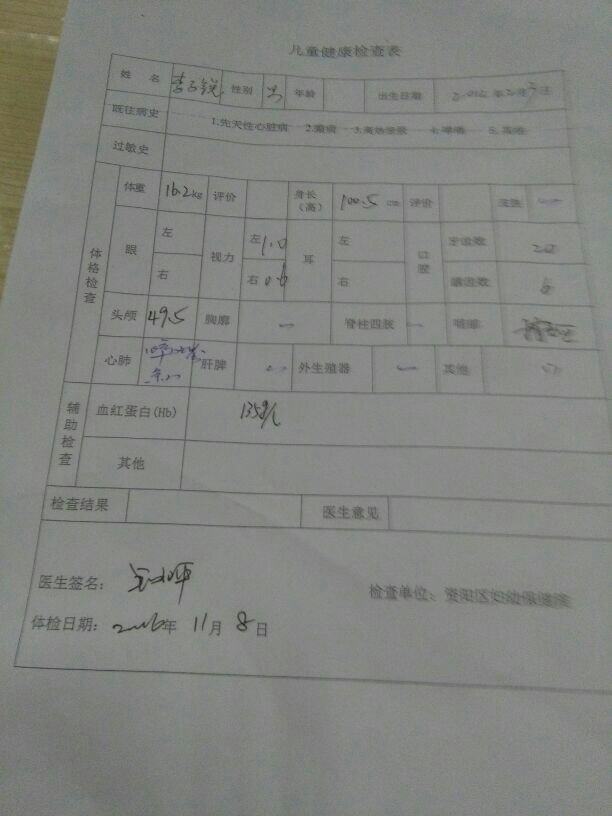 儿童健康检查表
姓 名 李子锐 性别 男 年龄 出生日期
既往病史 1.先天性心脏病 2.癫痫 3.高热惊厥 4.哮喘 5.其他
过敏史
体格检查 体重 16.2kg 评价 身长（高） 100.5 cm 评价 皮肤
眼 左 视力 左 1.0 耳 左 口腔 牙齿数 20
右 右 0.6 右 龋齿数 6
头颅 49.5 胸廓 脊柱四肢 咽喉
心肺 肝脾 外生殖器 其他
辅助检查 血红蛋白(Hb) 135g/L
其他
检查结果 医生意见
医生签名： 检查单位：资阳区妇幼保健院
体检日期：2016年 11月 8日